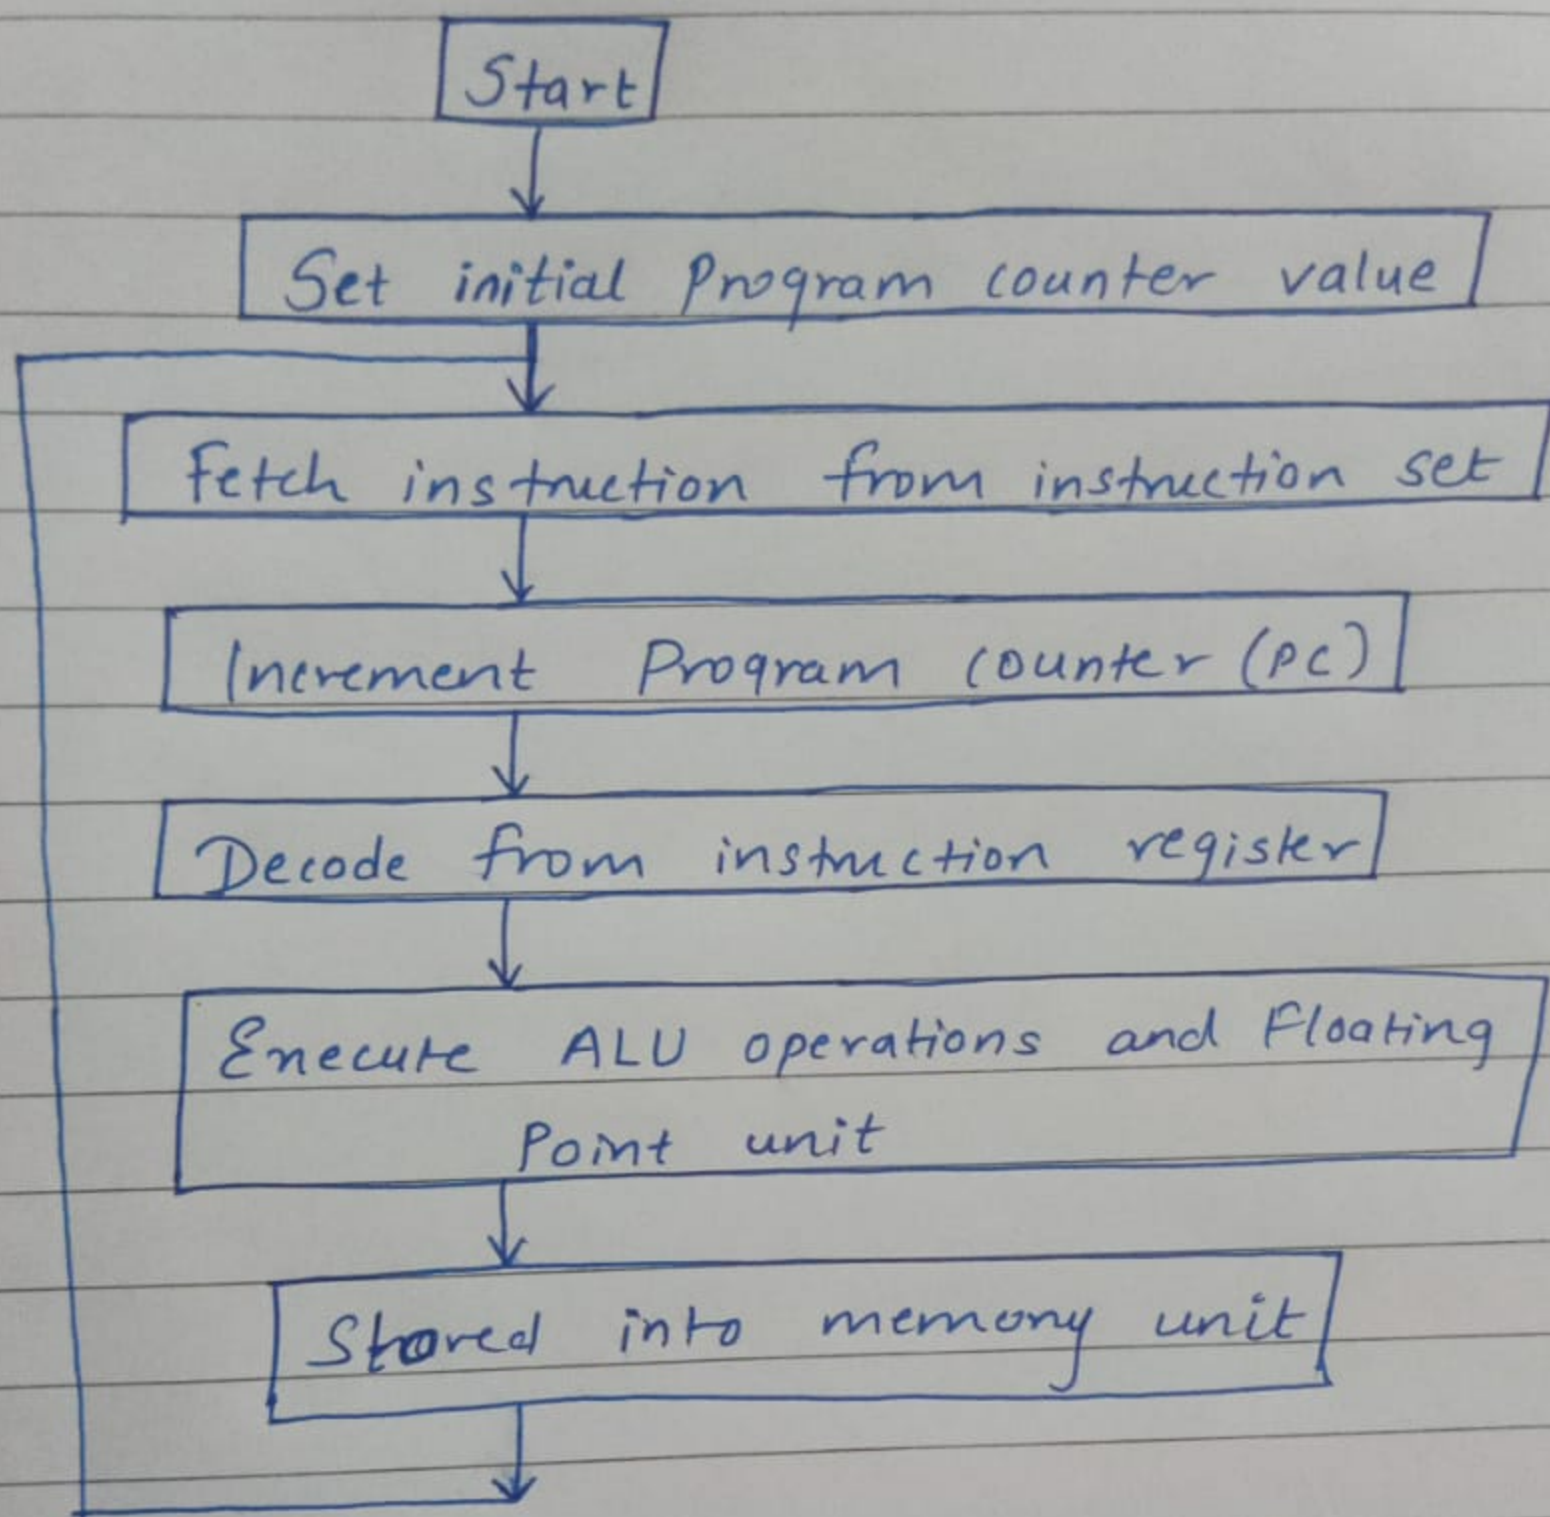 Start
Set initial Program counter value
Fetch instruction from instruction set
Increment Program counter (PC)
Decode from instruction register
Execute ALU operations and Floating
Point unit
Stored into memory unit